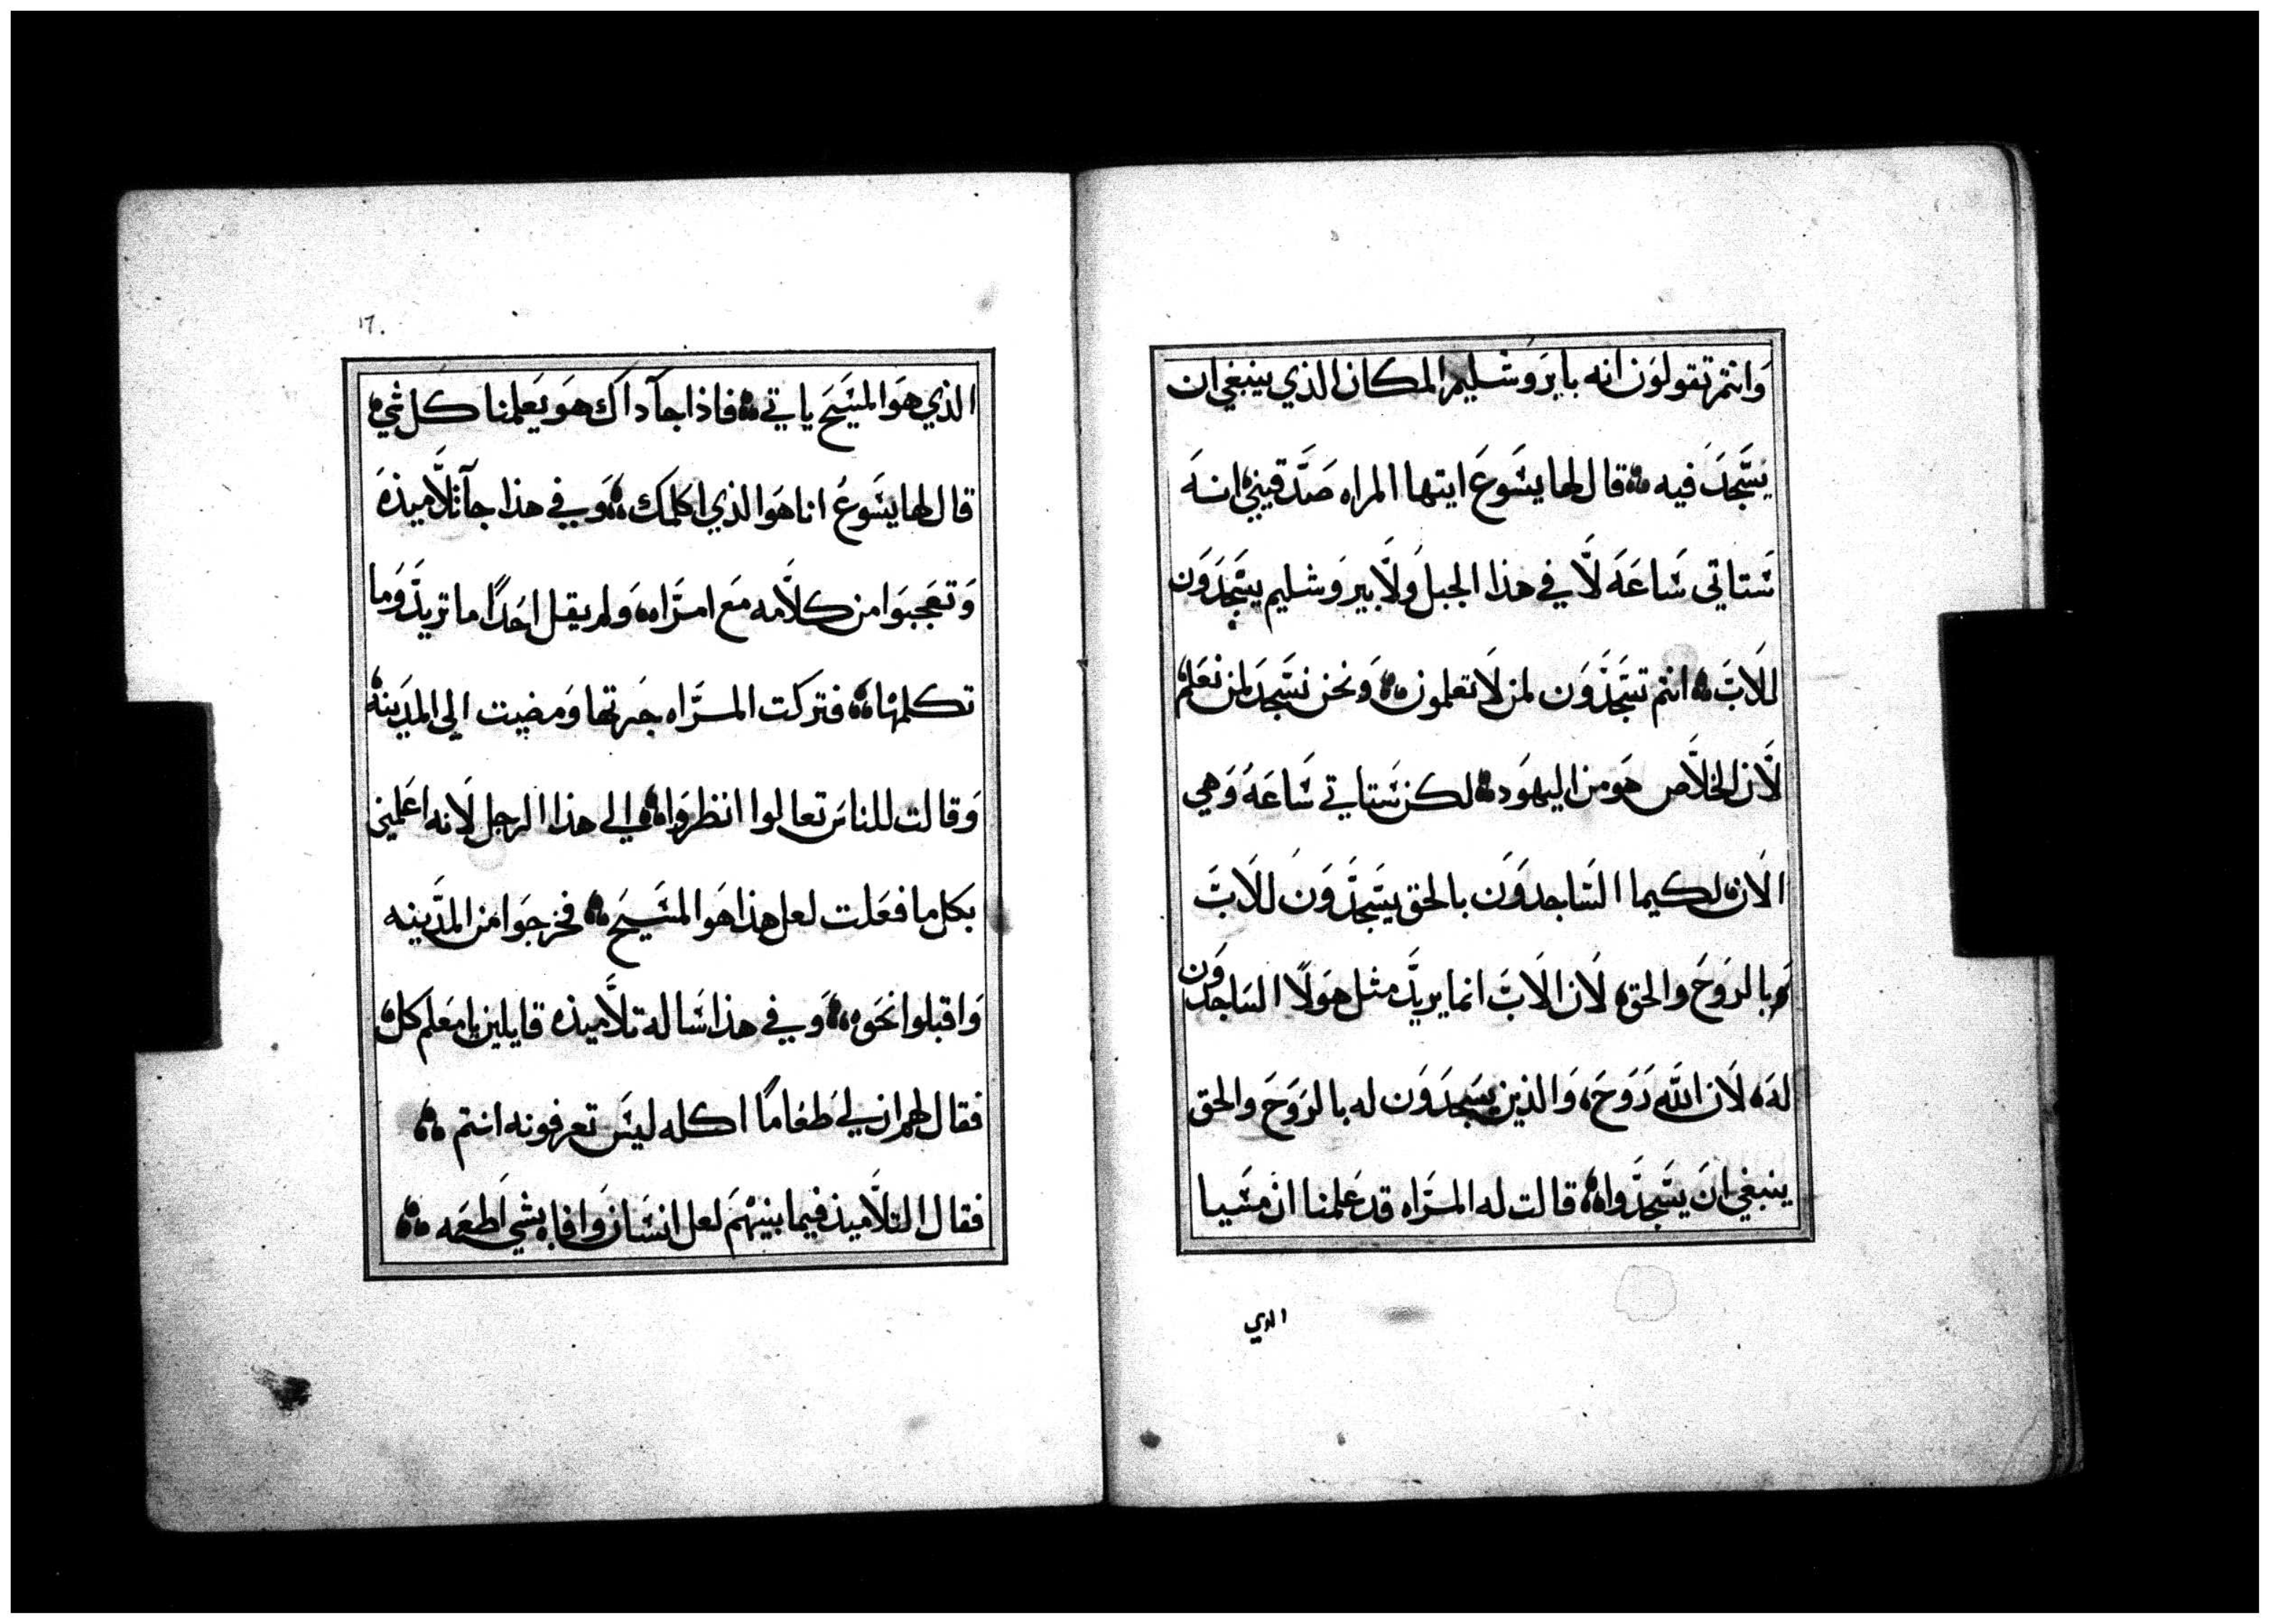 وانتم تقولون انه بايروشليم المكان الذي ينبغي ان
يسجد فيه قال لها يسوع ايتها المراه صدقيني انه
ستاتي ساعه لا في هذا الجبل ولا بيروشليم يسجدون
للاب انتم تسجدون لمن لا تعلمون ونحن نسجد لمن نعلم
لان الخلاص هو من اليهود لكن ستاتي ساعه وهي
الان لكيما الساجدون بالحق يسجدون للاب
وبالروح والحق لان الاب انما يريد مثل هولا الساجدون
له لان الله روح والذين يسجدون له بالروح والحق
ينبغي ان يسجدوا قالت له المراه قد علمنا ان مسيا
الذي
١٦٠
الذي هو المسيح ياتي فاذا جآ داك هو يعلمنا كل شي
قال لها يسوع انا هو الذي اكلمك وفي هذا جآ تلاميذه
وتعجبوا من كلامه مع امراه ولم يقل احدا ما تريد وما
تكلمها فتركت المراه جرتها ومضيت الى المدينة
وقالت للناس تعالوا انظروا الى هذا الرجل لانه اعلمني
بكل ما فعلت لعل هذا هو المسيح فخرجوا من المدينه
واقبلوا نحوه وفي هذا ساله تلاميذه قايلين يا معلم كل
فقال لهم ان لي طعاما اكله ليس تعرفونه انتم
فقال التلاميذ فيما بينهم لعل انسان وافاه بشي اطعمه